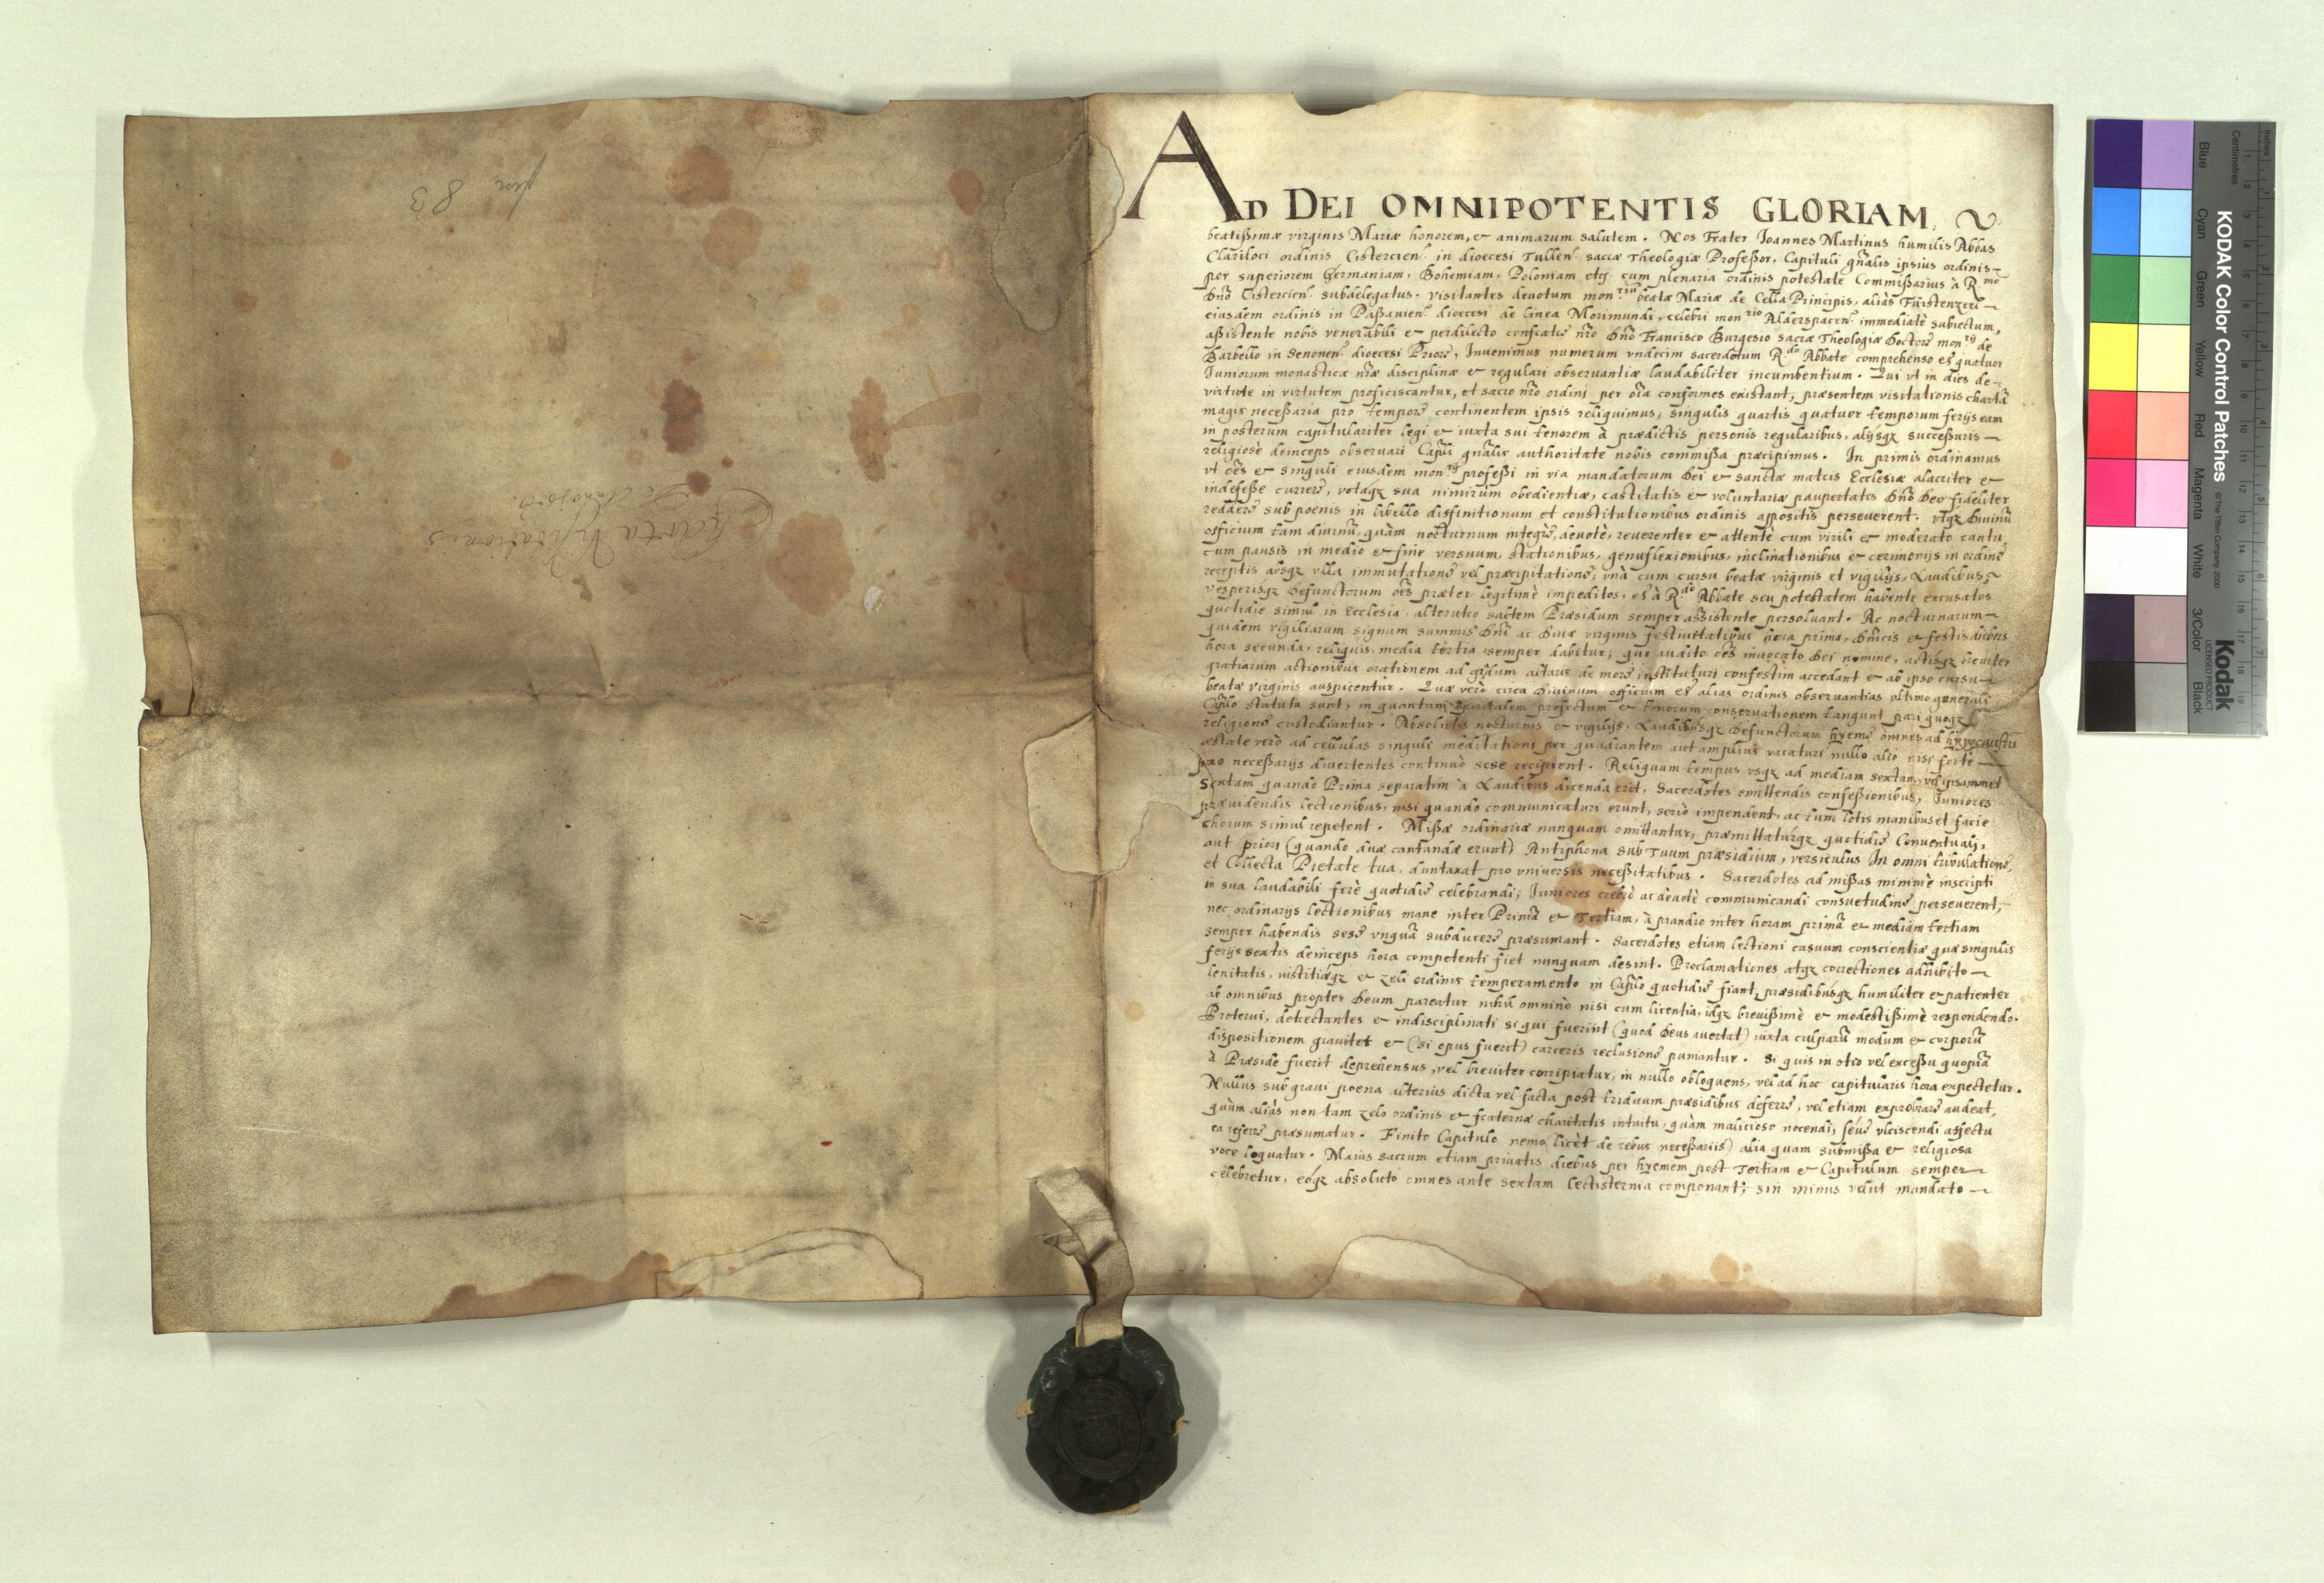 AD DEI OMNIPOTENTIS GLORIAM,
beatißimæ virginis Mariæ honorem, et animarum salutem. Nos Frater Ioannes Martinus humilis Abbas
Clariloci ordinis Cistercien. in diœcesi Tullen. sacræ Theologiæ Profeßor, Capituli gnãlis ipsius ordinis
per superiorem Germaniam, Bohemiam, Poloniam etc. cum plenaria ordinis potestate Commißarius à Rmo
Dño Cistercien. subdelegatus. visitantes deuotum monriũ beatæ Mariæ de Cella Principis, aliàs Fürstenzell
eiusdem ordinis in Paßauien. diœcesi de linea Morimundi, celebri monrio Alderspacen. immediatè subiectum,
aßistente nobis venerabili et perdilecto confratre nr̃o Dño Francisco Burgesio sacræ Theologiæ Doctore monrij de
Barbello in Senonen. diœcesi Priore, Inuenimus numerum vndecim sacerdotum Rdo Abbate comprehenso et quatuor
Iuniorum monasticæ nr̃æ disciplinæ et regulari obseruantiæ laudabiliter incumbentium. Qui vt in dies de
virtute in virtutem proficiscantur, et sacro nr̃o ordini per oĩa conformes existant, præsentem visitationis chartã
magis neceßaria pro tempore continentem ipsis reliquimus, singulis quartis quatuor temporum ferijs eam
in posterum capitulariter legi et iuxta sui tenorem à prædictis personis regularibus, alijsqz succeßuris
religiosè deinceps obseruari Caplĩ gnãlis authoritate nobis commißa præcipimus. In primis ordinamus
vt oẽs et singuli eiusdem monrij profeßi in via mandatorum Dei et sanctæ matris Ecclesiæ alacriter et
indefeße currere, votáqz sua nimirùm obedientiæ, castitatis et voluntariæ paupertatis Dño Deo fideliter
reddere sub poenis in libello diffinitionum et constitutionibus ordinis appositis perseuerent. vtqz Diuinũ
officium tam diurnũ, quàm nocturnum integrè, deuotè, reuerenter et attentè cum virili et moderato cantu,
cum pausis in medio et fine versuum, stationibus, genuflexionibus, inclinationibus et cerimonijs in ordine
receptis absqz vlla immutatione vel præcipitatione, vnà cum cursu beatæ virginis et vigilijs, Laudibus,
Vesperísqz Defunctorum oẽs præter legitimè impeditos, et à Rdo Abbate seu potestatem habente excusatos
quotidie simul in Ecclesia, alterutro saltem Præsidum semper aßistente persoluant. Ac nocturnarum
quidem vigiliarum signum summis Dñi ac Diuæ virginis festiuitatibus hora prima, Dñicis et festis diebus
hora secunda, reliquis media tertia semper dabitur; quo audito oẽs inuocato Dei nomine, actísqz breuiter
gratiarum actionibus orationem ad gradum altaris de more instituturi confestim accedant et ab ipso cursu
beatæ virginis auspicentur. Quæ verò circa Diuinum officium et alias ordinis obseruantias vltimo generali
Caplo statuta sunt, in quantum spiritalem profectum et bonorum conseruationem tangunt pari quoqz
religione custodiantur. Absolutis nocturnis et vigilijs, Laudibusqz Defunctorum hyeme omnes ad hypocaustũ
æstate verò ad cellulas singuli meditationi per quadrantem aut amplius vacaturi nullo alio nisi fortè
pro neceßarijs diuertentes continuò sese recipient. Reliquum tempus vsqz ad mediam sextam, vel ipsammet
Sextam quando Prima separatim à Laudibus dicenda erit, Sacerdotes emittendis confeßionibus, Iuniores
præuidendis lectionibus, nisi quando communicaturi erunt, seriò impendent, ac tum lotis manibus et facie
chorum simul repetent. Mißæ ordinariæ nunquam omittantur, præmittatúrqz quotidie Conuentuali,
aut priori (quando duæ cantandæ erunt) Antiphona Sub Tuum præsidium, versiculus In omni tribulatione,
et Collecta Pietate tua, duntaxat pro vniuersis neceßitatibus. Sacerdotes ad mißas minimè inscripti
in sua laudabili ferè quotidie celebrandi; Iuniores crebrò ac deuotè communicandi consuetudine perseuerent,
nec ordinarijs lectionibus mane inter Primã et Tertiam, à prandio inter horam primã et mediam tertiam
semper habendis sese vnquã subducere præsumant. Sacerdotes etiam lectioni casuum conscientiæ quæ singulis
ferijs sextis deinceps hora competenti fiet nunquam desint. Proclamationes atqz correctiones adhibito
lenitatis, iustitiæqz et zeli ordinis temperamento in Caplo quotidie fiant, præsidibúsqz humiliter et patienter
ab omnibus propter Deum pareatur nihil omninò nisi cum licentia, idqz breuißimè et modestißimè respondendo.
Proterui, detrectantes et indisciplinati si qui fuerint (quod Deus auertat) iuxta culparũ modum et corporũ
dispositionem grauiter et (si opus fuerit) carceris reclusione puniantur. Si quis in otio vel exceßu quopiã
à Præside fuerit deprehensus, vel breuiter corripiatur, in nullo obloquens, vel ad hoc capitularis hora expectetur.
Nullus sub graui poena alterius dicta vel facta post triduum præsidibus deferre, vel etiam exprobrare audeat,
quùm aliàs non tam zelo ordinis et fraternæ charitatis intuitu, quàm malicioso nocendi, seùe vlciscendi affectu
ea referre præsumatur. Finito Capitulo nemo (licèt de rebus neceßarijs) alia quam submißa et religiosa
voce loquatur. Maius sacrum etiam priuatis diebus per hyemem post Tertiam et Capitulum semper
celebretur, eóqz absoluto omnes ante sextam lectisternia componant; sin minus velut mandato
Charta Visitationis
fur 83
KODAK Color Control Patches
© The Tiffen Company, 2000
Kodak
LICENSED PRODUCT
Inches
Centimetres
Blue
Cyan
Green
Yellow
Red
Magenta
White
3/Color
Black